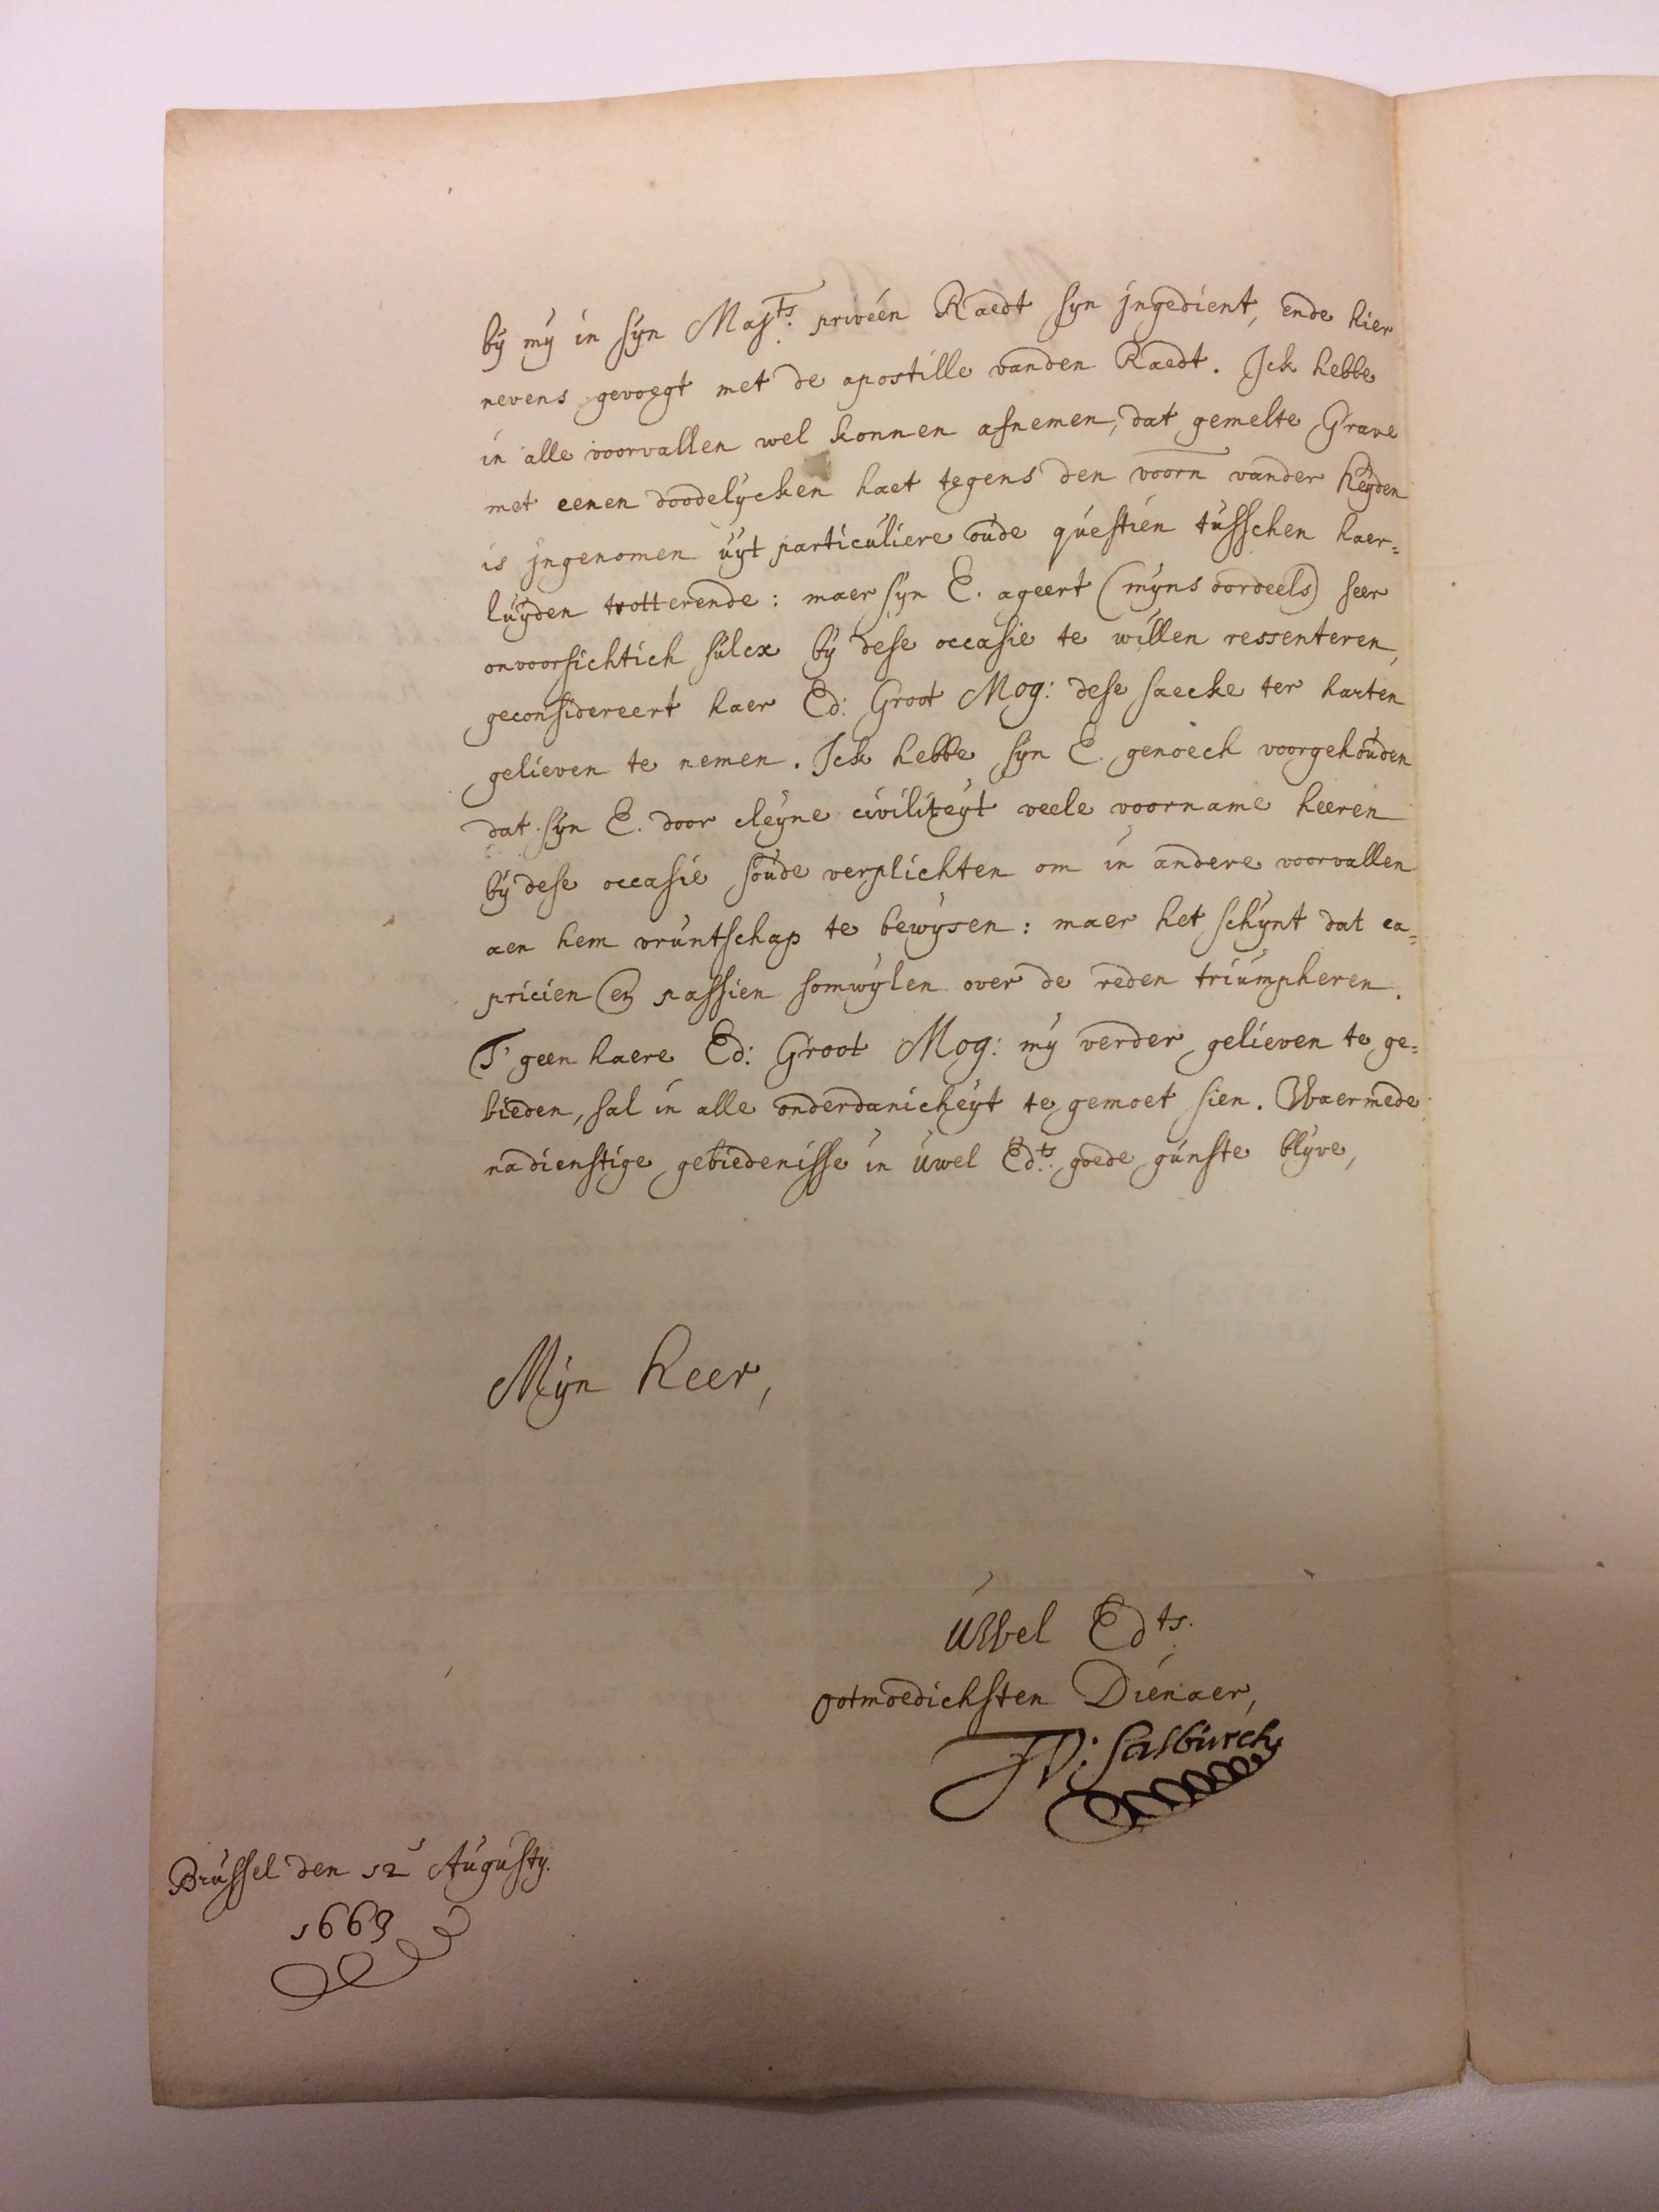 by my in syn Maj.ts privéen Raedt syn jngedient, ende hier
nevens gevoegt met de apostille vanden Raedt. Ick hebbe
in alle voorvallen wel konnen afnemen, dat gemelte Grave
met eenen doodelycken haet tegens den voorn vander heyden
is jngenomen uyt particuliere oude questien tusschen haer=
luyden trotterende: maer syn E. ageert (myns oordeels) seer
onvoorsichtich sulcx by dese occasie te willen ressenteren,
geconsidereert haer Ed: Groot Mog: dese saecke ter harten
gelieven te nemen. Ick hebbe syn E. genoech voorgehouden
dat syn E. door cleyne civiliteyt veele voorname heeren
by dese occasie soude verplichten om in andere voorvallen
aen hem vruntschap te bewysen: maer het schynt dat ca=
pricien en passien somwylen over de reden triumpheren.
T' geen haere Ed: Groot Mog: my verder gelieven te ge=
bieden, sal in alle onderdanicheyt te gemoet sien. Waermede
nadienstige gebiedenisse in uwel Ed.ts goede gunste blyve,
Myn heer,
UWel Edts.
ootmoedichsten Dienaer,
JV: Sasburch
Brussel den 12 Augusty.
1663